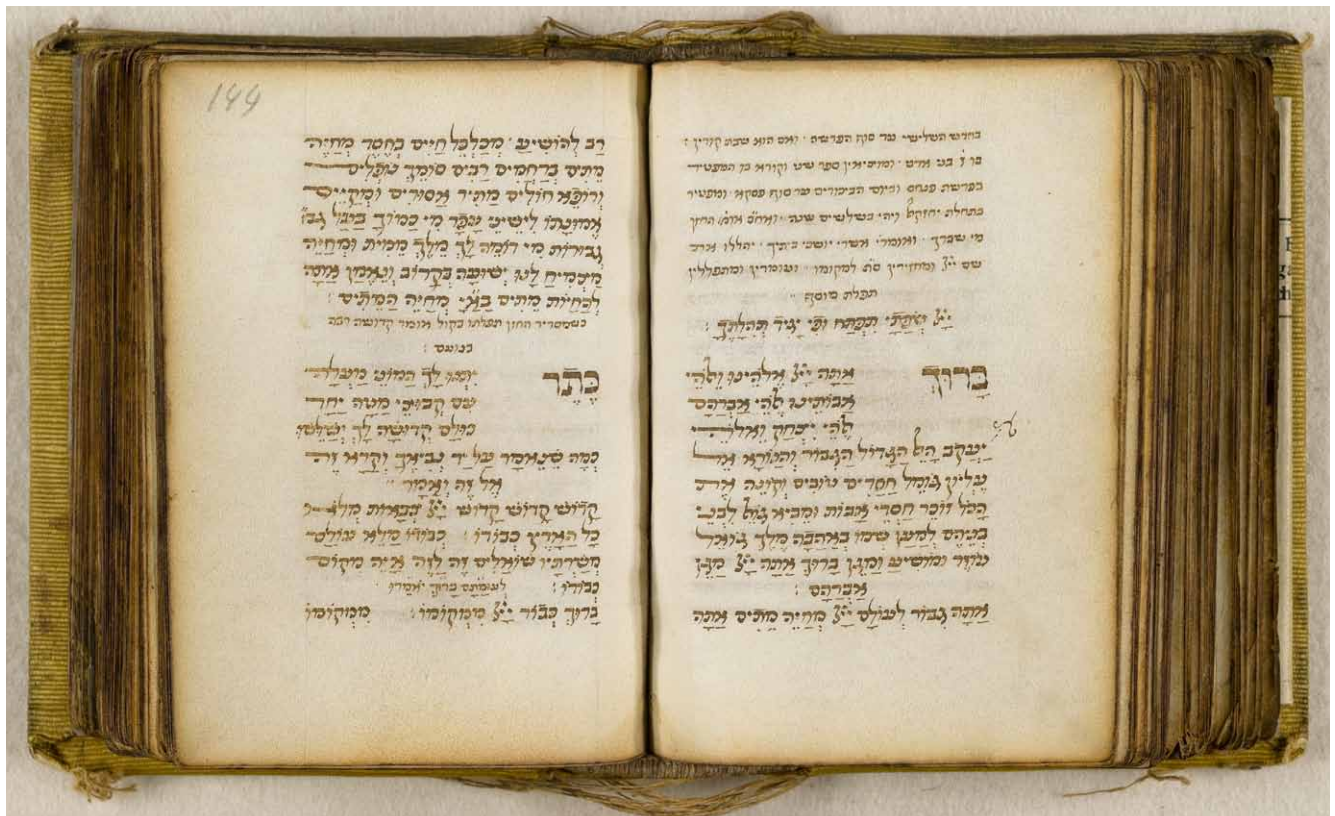 בחדש השלישי עד סוף הפרשה · ואם הוא שבת קורין :
בו ז̇ בני אדם · ומוציאין ספר שני וקורא בו המפטיר
בפרשת פנחס וביום הביכורים עד סוף פסקא · ומפטיר
בתחלת יחזקאל ויהי בשלשים שנה · ואומ׳ החזן
מי שברך · ואומרי׳ אשרי יושבי ביתך · יהללו את
שם ייי̇ ומחזירין ס̇ת̇ למקומו · ועומדין ומתפללין
תפלת מוסף
ייי̇ שְׂפָתַי תִפְתָּח וּפִי יַגִיד תְּהִלָתֶךָ :
בָּרוּךְ אַתָּה ייי̇ אֱלֹהֵינוּ וֵאלֹהֵי
אֲבוֹתֵינוּ אֱלֹהֵי אַבְרָהָם
אֱלֹהֵי יִצְחָק וֵאלוֹהֵי
יַעֲקֹב הָאֵל הַגָּדוֹל הַגִּבּוֹר וְהַנּוֹרָא אֵל
עֶלְיוֹן גּוֹמֵל חֲסָדִים טוֹבִים וְקוֹנֵה אֶת
הַכֹּל זוֹכֵר חַסְדֵּי אָבוֹת וּמֵבִיא גוֹאֵל לִבְנֵי
בְנֵיהֶם לְמַעַן שְׁמוֹ בְּאַהֲבָה מֶלֶךְ גּוֹאֵל
עוֹזֵר וּמוֹשִׁיעַ וּמָגֵן בָּרוּךְ אַתָּה ייי̇ מָגֵן
אַבְרָהָם :
אַתָּה גִּבּוֹר לְעוֹלָם ייי̇ מְחַיֵּה מֵתִים אַתָּה
144
רַב לְהוֹשִׁיעַ · מְכַלְכֵּל חַיִּים בְּחֶסֶד מְחַיֵּה
מֵתִים בְּרַחֲמִים רַבִּים סוֹמֵךְ נוֹפְלִים
וְרוֹפֵא חוֹלִים מַתִּיר אֲסוּרִים וּמְקַיֵּים
אֱמוּנָתוֹ לִישֵׁינֵי עָפָר מִי כָמוֹךָ בַּעַל גְבוּ׳
גְּבוּרוֹת מִי דוֹמֶה לָּךְ מֶלֶךְ מֵמִית וּמְחַיֶּה
מַצְמִיחַ לָנוּ יְשׁוּעָה בְקָרוֹב וְנֶאֱמָן אַתָּה
לְהַחֲיוֹת מֵתִים בָּא״י מְחַיֵּה הַמֵּתִים :
כשמסדיר החזן תפלתו בקול אומר קדושה רבה
בנועם :
כֶּתֶר יִתְּנוּ לָךְ הֲמוֹנֵי מַעְלָה
עִם קְבוּצֵי מַטָּה יַחַד
כּוּלָּם קְדוּשָּׁה לָךְ יְשַׁלֵּשׁוּ
כְּמָה שֶׁנֶּאֱמַר עַל יַד נְבִיאָךְ וְקָרָא זֶה
אֶל זֶה וְאָמַר
קָדוֹשׁ קָדוֹשׁ קָדוֹשׁ ייי̇ צְבָאוֹת מְלֹא
כָל הָאָרֶץ כְּבוֹדוֹ : כְּבוֹדוֹ מָלֵא עוֹלָם
מְשָׁרְתָיו שׁוֹאֲלִים זֶה לָזֶה אַיֵּה מְקוֹם
כְּבוֹדוֹ : לְעוּמָּתָם בָּרוּךְ יֹאמֵרוּ
בָּרוּךְ כְּבוֹד ייי̇ מִמְּקוֹמוֹ : מִמְּקוֹמוֹ